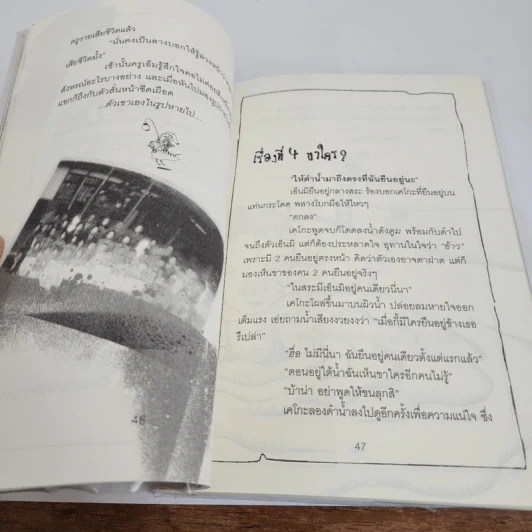 ครูวายเสียชีวิตแล้ว
"นั่นคงเป็นลางบอกให้รู้ล่วงหน้า
เสียชีวิตมั้ง"
เช้านั้นครูเอ็มรู้สึกใจคอไม่ค่อย
สังหรณ์อะไรบางอย่าง และเมื่อหันไปมอง
แขกก็ถึงกับตัวสั่นหน้าซีดเผือด
...ตัวเขาเองในรูปหายไป...
46
เรื่องที่ 4 ขาใคร?
"ให้ดำน้ำมาถึงตรงที่ฉันยืนอยู่นะ"
เอ็นมิยืนอยู่กลางสระ ร้องบอกเคโกะที่ยืนอยู่บน
แท่นกระโดด พลางโบกมือให้ไหวๆ
"ตกลง"
เคโกะพูดจบก็โดดลงน้ำดังตูม พร้อมกับดำไป
จนถึงตัวเอ็นมิ แต่ก็ต้องประหลาดใจ อุทานในใจว่า "อ้าว"
เพราะมี 2 คนยืนอยู่ตรงหน้า คิดว่าตัวเองอาจตาฝาด แต่ก็
มองเห็นขาของคน 2 คนยืนอยู่จริงๆ
"ในสระมีเอ็นมิอยู่คนเดียวนี่นา"
เคโกะโผล่ขึ้นมาบนผิวน้ำ ปล่อยลมหายใจออก
เต็มแรง เอ่ยถามน้ำเสียงงวยงงว่า "เมื่อกี้มีใครยืนอยู่ข้างเธอ
รึเปล่า"
"ฮื่อ ไม่มีนี่นา ฉันยืนอยู่คนเดียวตั้งแต่แรกแล้ว"
"ตอนอยู่ใต้น้ำฉันเห็นขาใครอีกคนไม่รู้"
"บ้าน่า อย่าพูดให้ขนลุกสิ"
เคโกะลองดำน้ำลงไปดูอีกครั้งเพื่อความแน่ใจ ซึ่ง
47